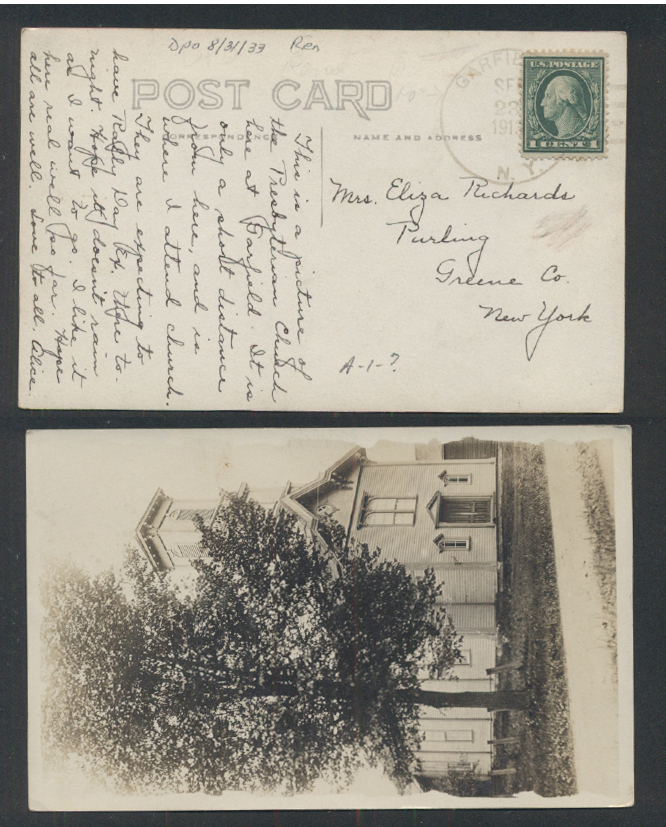 DPO 8/31/33 Ren
POST CARD
CORRESPONDENCE
NAME AND ADDRESS
GARFIELD
SEP
23
1913
N.Y.
U.S. POSTAGE
1 CENT 1
Mrs. Eliza Richards
Purling
Greene Co.
New York
A-1-?
This is a picture of
the Presbyterian Church
here at Garfield. It is
only a short distance
from here, and is
where I attend church.
They are expecting to
have Rally Day Hope to-
night. Hope it doesn't rain
as I want to go. I like it
here real well so far. Hope
all are well. Love to all. Alice.